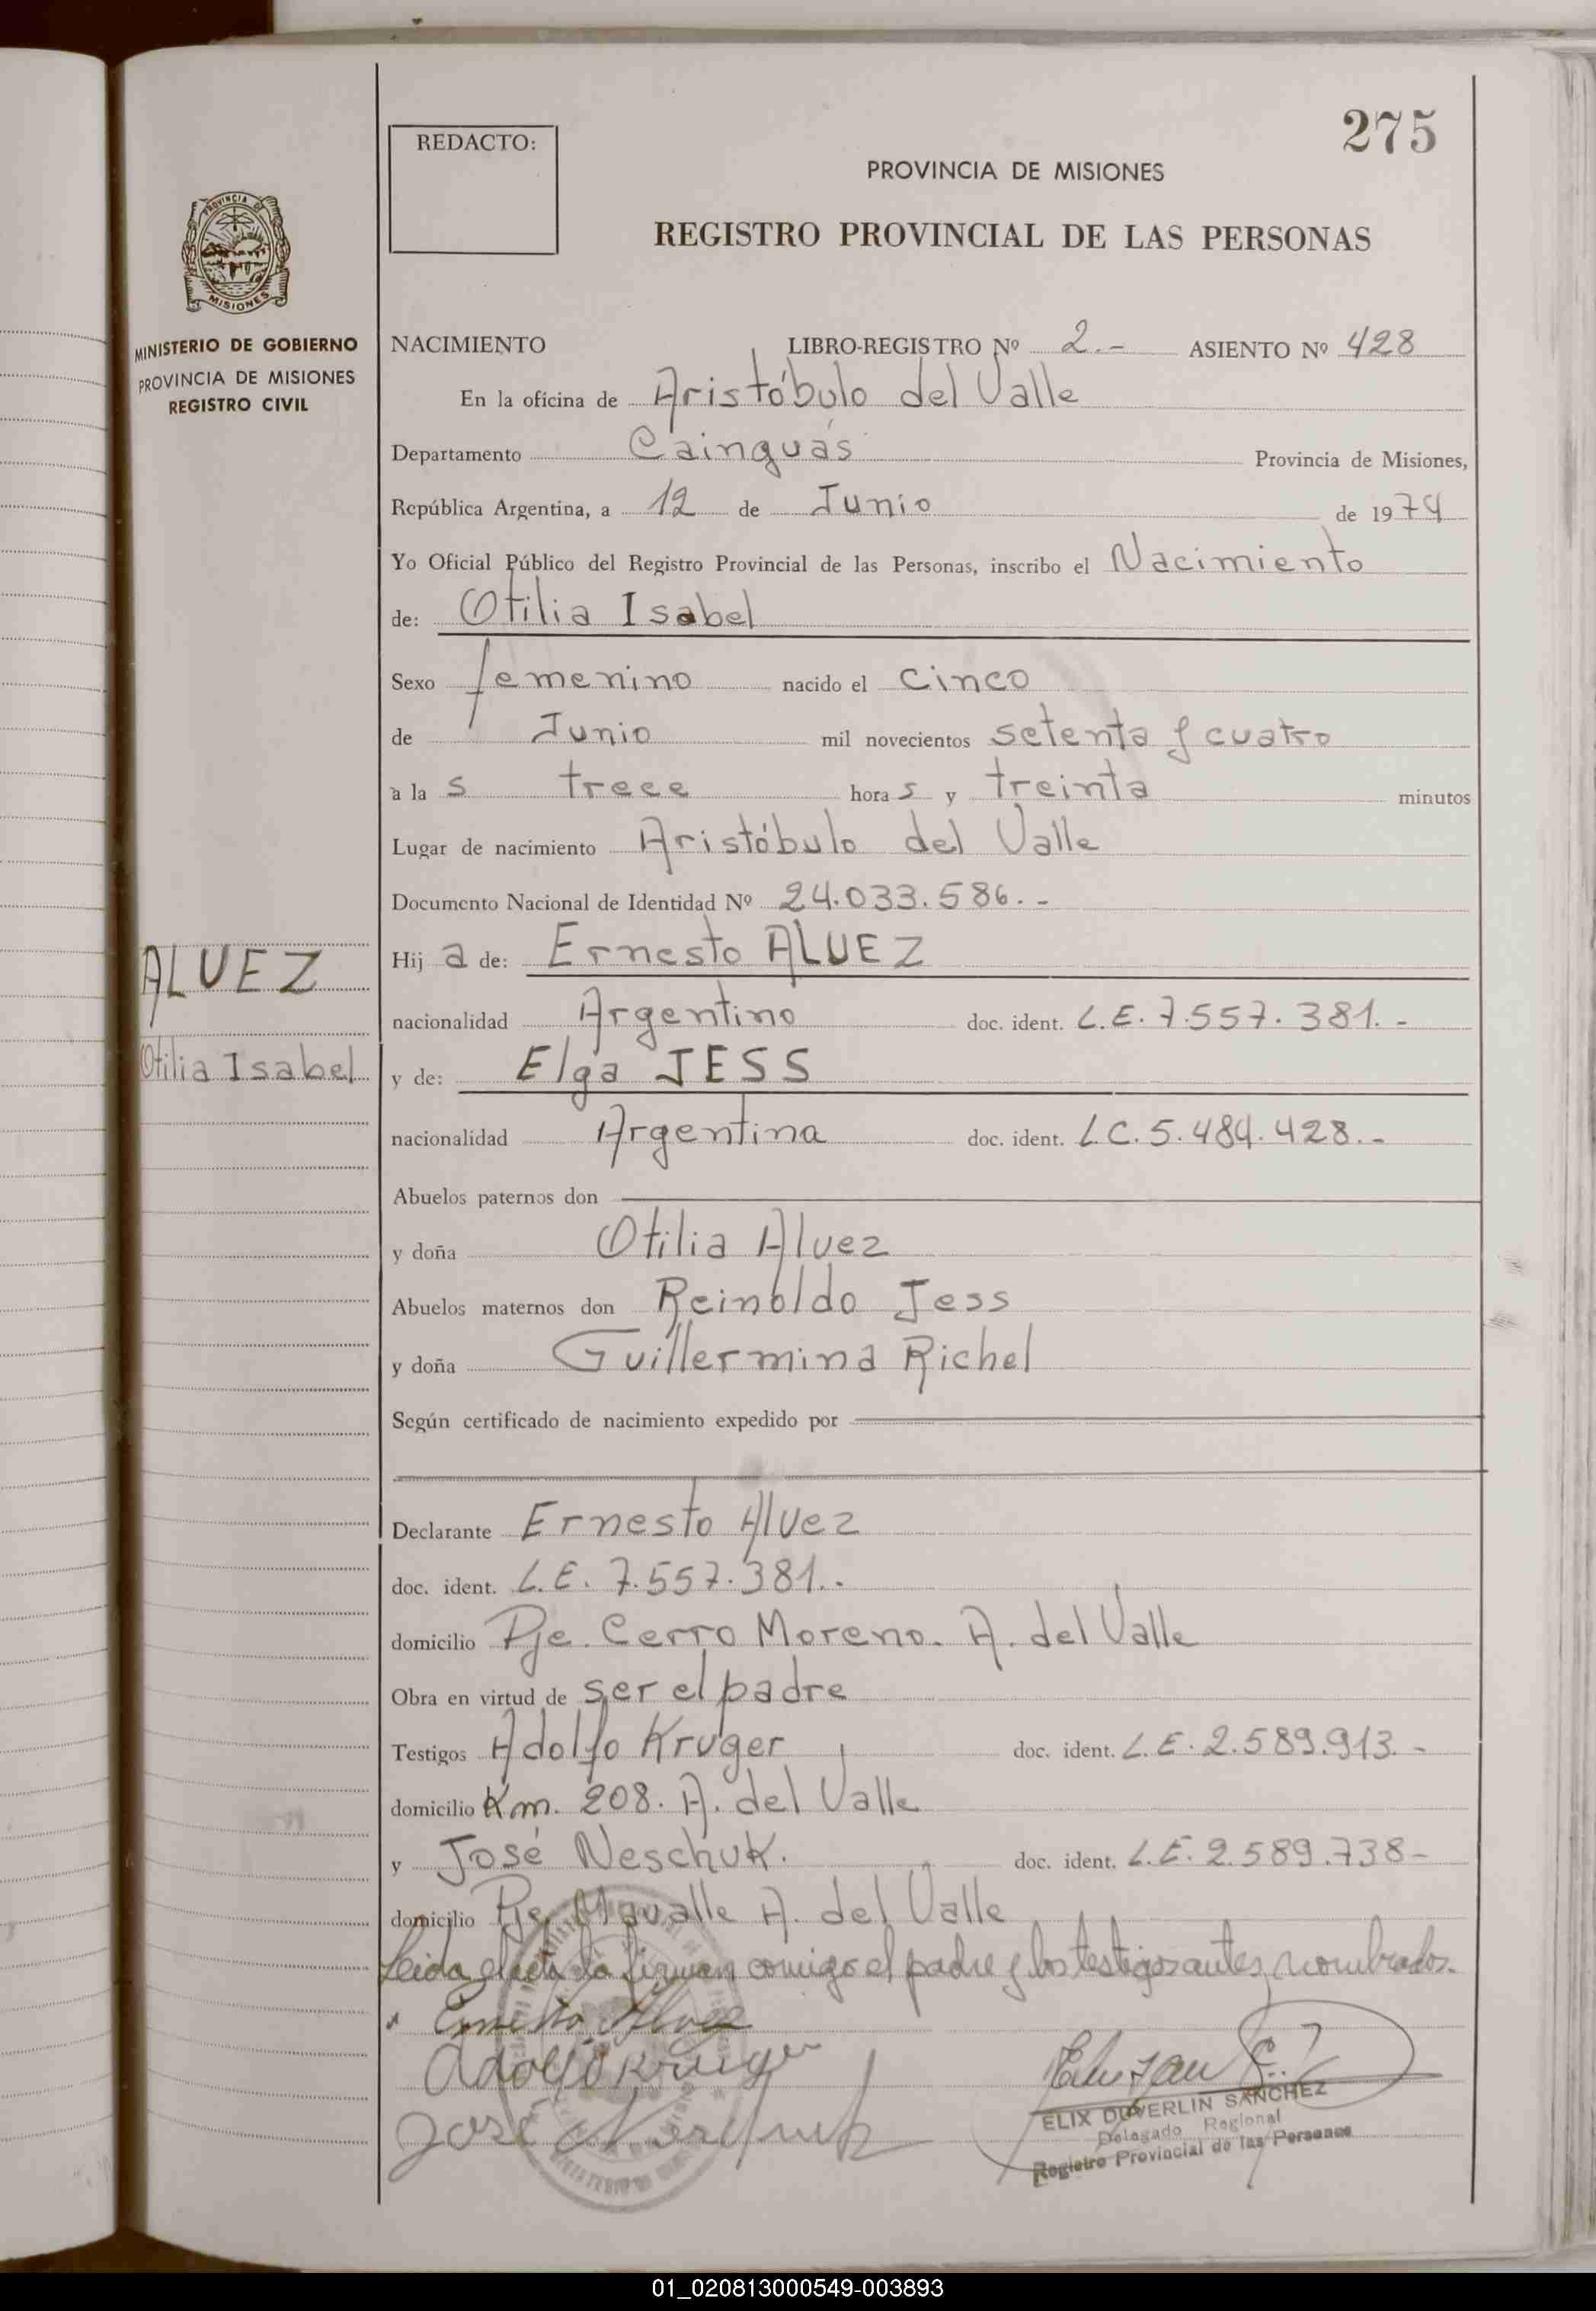 275
REDACTO:
PROVINCIA DE MISIONES
REGISTRO PROVINCIAL DE LAS PERSONAS
PROVINCIA DE
MISIONES
MINISTERIO DE GOBIERNO
PROVINCIA DE MISIONES
REGISTRO CIVIL
NACIMIENTO LIBRO-REGISTRO Nº 2.- ASIENTO Nº 428
En la oficina de Aristóbulo del Valle
Departamento Cainguás Provincia de Misiones,
República Argentina, a 12 de Junio de 1974
Yo Oficial Público del Registro Provincial de las Personas, inscribo el Nacimiento
de: Otilia Isabel
Sexo femenino nacido el cinco
de Junio mil novecientos setenta y cuatro
a la s trece hora s y treinta minutos
Lugar de nacimiento Aristóbulo del Valle
Documento Nacional de Identidad Nº 24.033.586.-
ALVEZ
Hij a de: Ernesto ALVEZ
nacionalidad Argentino doc. ident. L.E. 7.557.381.-
Otilia Isabel
y de: Elga JESS
nacionalidad Argentina doc. ident. L.C. 5.484.428.-
Abuelos paternos don
y doña Otilia Alvez
Abuelos maternos don Reinoldo Jess
y doña Guillermina Richel
Según certificado de nacimiento expedido por
Declarante Ernesto Alvez
doc. ident. L.E. 7.557.381.-
domicilio Pje. Cerro Moreno. A. del Valle
Obra en virtud de ser el padre
Testigos Adolfo Kruger doc. ident. L.E. 2.589.913.-
domicilio Km. 208. A. del Valle
y José Neschuk. doc. ident. L.E. 2.589.738-
domicilio Pje. Mavalle A. del Valle
Leida el acta la firman comigo el padre y los testigos antes nombrados.-
Ernesto Alvez
Adolfo Kruger
José
ELIX DUVERLIN SANCHEZ
Delegado Regional
Registro Provincial de las Personas
01_020813000549-003893